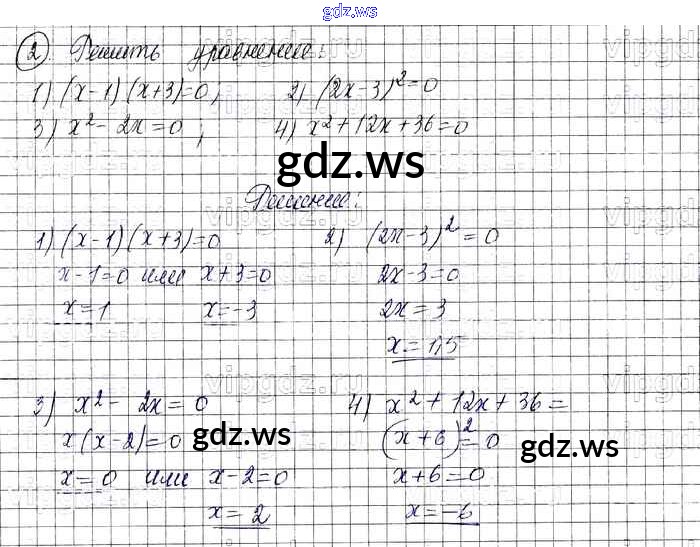 gdz.ws
2. Решить уравнение:
1) (x-1)(x+3)=0; 2) (2x-3)²=0
3) x²-2x=0; 4) x²+12x+36=0
gdz.ws
Решение:
1) (x-1)(x+3)=0
x-1=0 или x+3=0
x=1 x=-3
2) (2x-3)²=0
2x-3=0
2x=3
x=1,5
3) x²-2x=0
x(x-2)=0 gdz.ws
x=0 или x-2=0
x=2
4) x²+12x+36=
(x+6)²=0 gdz.ws
x+6=0
x=-6